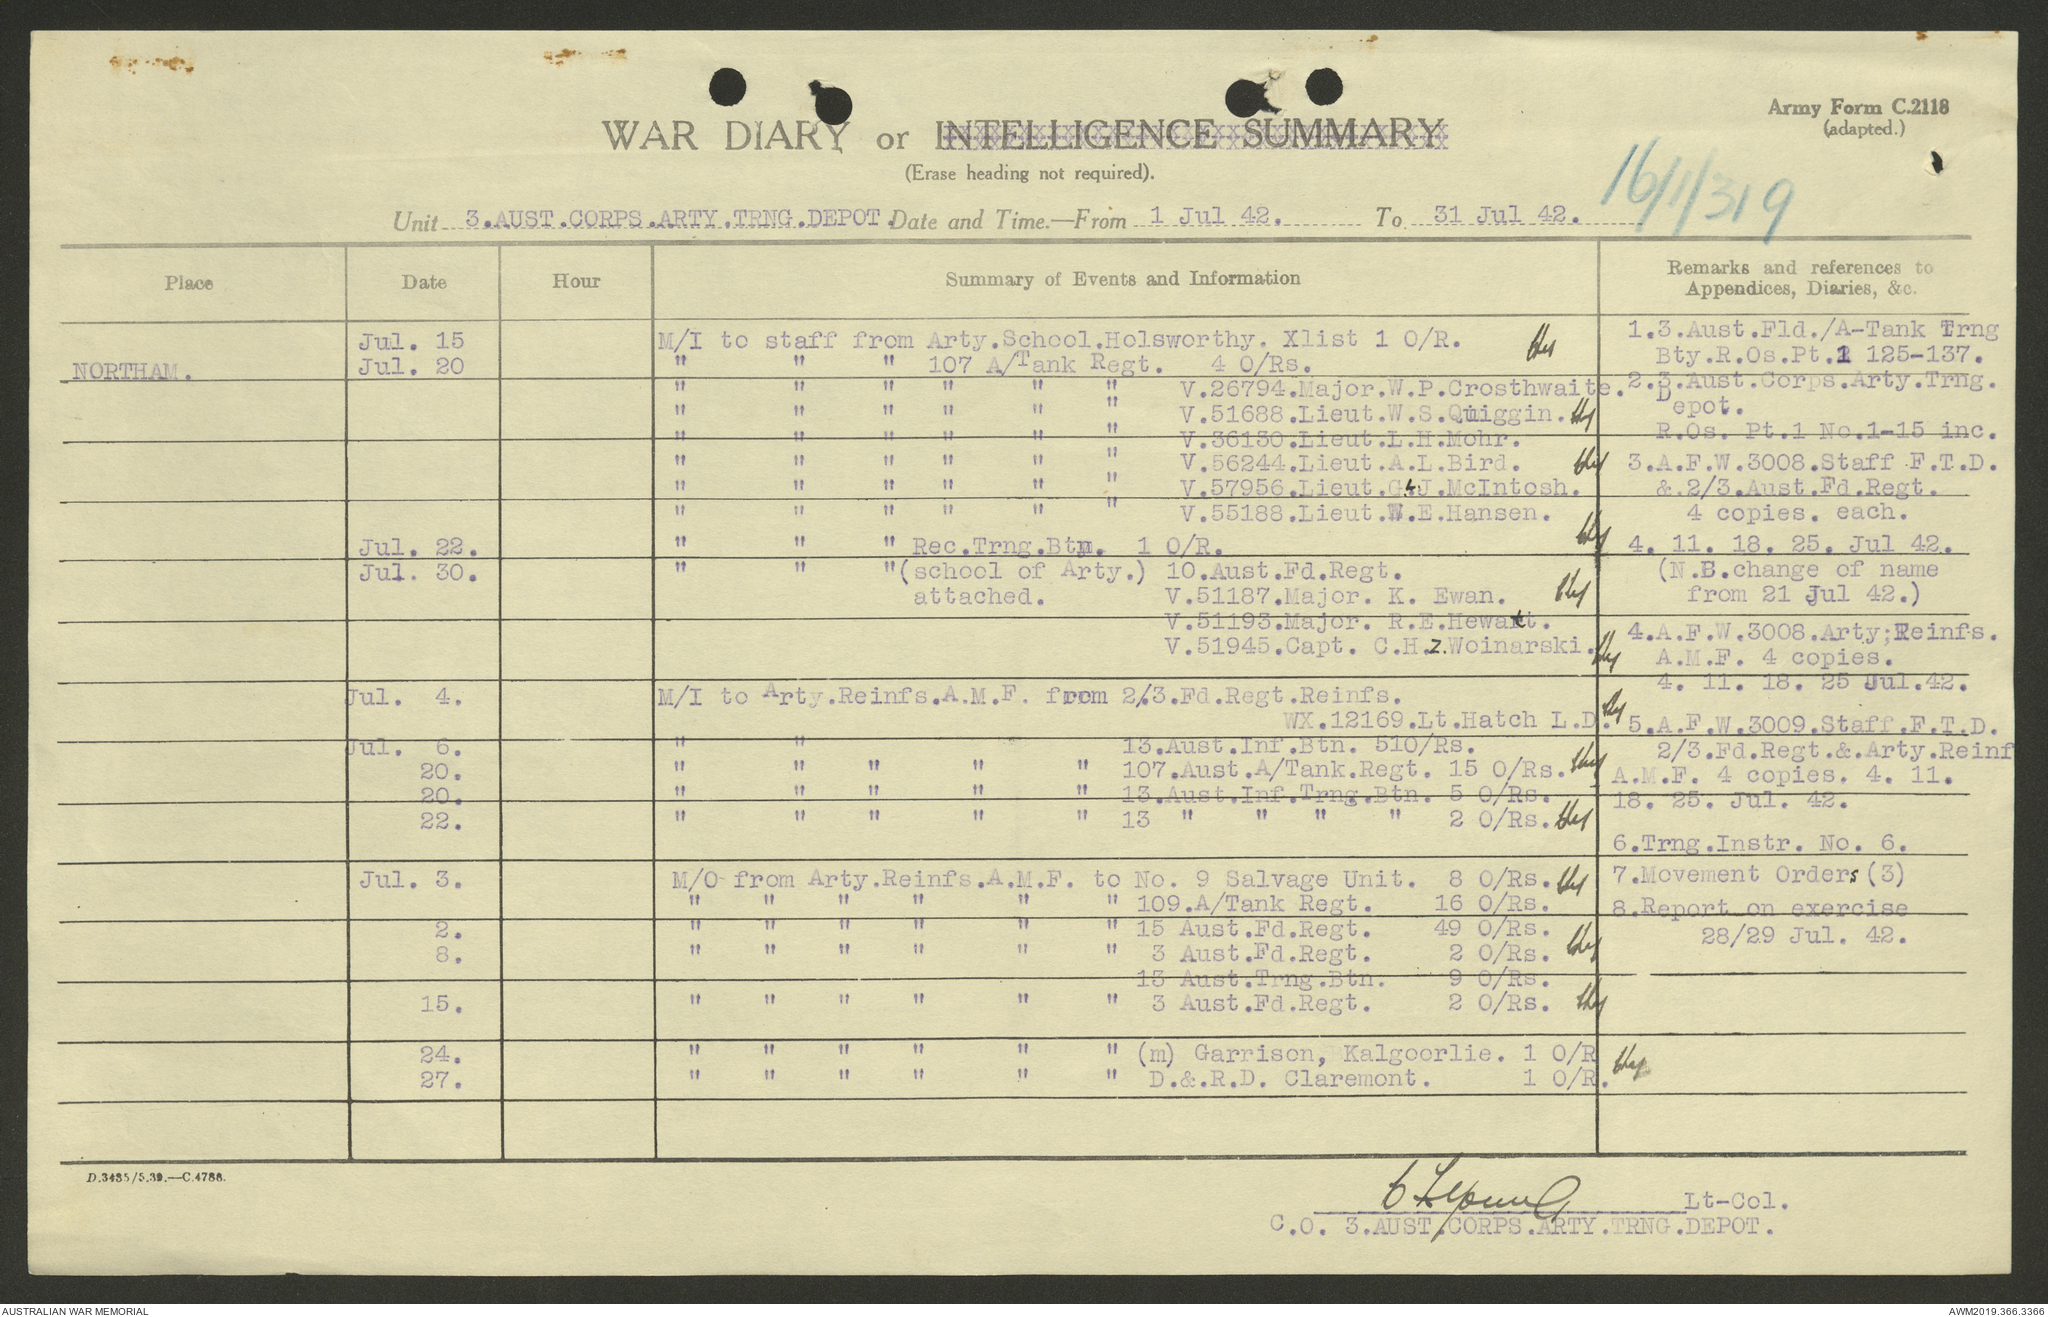 Army Form C.2118
(adapted.)
WAR DIARY or INTELLIGENCE SUMMARY
(Erase heading not required).
16/1/319
Unit 3.AUST.CORPS.ARTY.TRNG.DEPOT. Date and Time.—From 1 Jul 42. To 31 Jul 42.
Place Date Hour Summary of Events and Information Remarks and references to Appendices, Diaries, &c.
NORTHAM.
Jul. 15 M/I to staff from Arty.School.Holsworthy. Xlist 1 O/R.
Jul. 20 " " " 107 A/Tank Regt. 4 O/Rs.
" " " " " " V.26794.Major.W.P.Crosthwaite.
" " " " " " V.51688.Lieut.W.S.Quiggin.
" " " " " " V.36130.Lieut.L.H.Mohr.
" " " " " " V.56244.Lieut.A.L.Bird.
" " " " " " V.57956.Lieut.G.J.McIntosh.
" " " " " " V.55188.Lieut.W.E.Hansen.
Jul. 22. " " " Rec.Trng.Btn. 1 O/R.
Jul. 30. " " "(school of Arty.) 10.Aust.Fd.Regt.
attached. V.51187.Major. K. Ewan.
V.51193.Major. R.E.Hewatt.
V.51945.Capt. C.H.Z.Woinarski.
Jul. 4. M/I to Arty.Reinfs.A.M.F. from 2/3.Fd.Regt.Reinfs.
WX.12169.Lt.Hatch L.D.
Jul. 6. " " 13.Aust.Inf.Btn. 51O/Rs.
20. " " " " " 107.Aust.A/Tank.Regt. 15 O/Rs.
20. " " " " " 13.Aust.Inf.Trng.Btn. 5 O/Rs.
22. " " " " " 13 " " " " 2 O/Rs.
Jul. 3. M/O from Arty.Reinfs.A.M.F. to No. 9 Salvage Unit. 8 O/Rs.
" " " " " " 109.A/Tank Regt. 16 O/Rs.
2. " " " " " " 15 Aust.Fd.Regt. 49 O/Rs.
8. " " " " " " 3 Aust.Fd.Regt. 2 O/Rs.
13 Aust.Trng.Btn. 9 O/Rs.
15. " " " " " " 3 Aust.Fd.Regt. 2 O/Rs.
24. " " " " " " (m) Garrison, Kalgoorlie. 1 O/R
27. " " " " " " D.&.R.D. Claremont. 1 O/R.
1.3.Aust.Fld./A-Tank Trng
Bty.R.Os.Pt.1 125-137.
2.3.Aust.Corps.Arty.Trng.
Depot.
R.Os. Pt.1 No.1-15 inc.
3.A.F.W.3008.Staff F.T.D.
&.2/3.Aust.Fd.Regt.
4 copies. each.
4. 11. 18. 25. Jul 42.
(N.B.change of name
from 21 Jul 42.)
4.A.F.W.3008.Arty;Reinfs.
A.M.F. 4 copies.
4. 11. 18. 25 Jul.42.
5.A.F.W.3009.Staff.F.T.D.
2/3.Fd.Regt.&.Arty.Reinf
A.M.F. 4 copies. 4. 11.
18. 25. Jul. 42.
6.Trng.Instr. No. 6.
7.Movement Orders (3)
8.Report on exercise
28/29 Jul. 42.
D.3485/5.39.—C.4788.
Lt-Col.
C.O. 3.AUST.CORPS.ARTY.TRNG.DEPOT.
AUSTRALIAN WAR MEMORIAL
AWM2019.366.3366